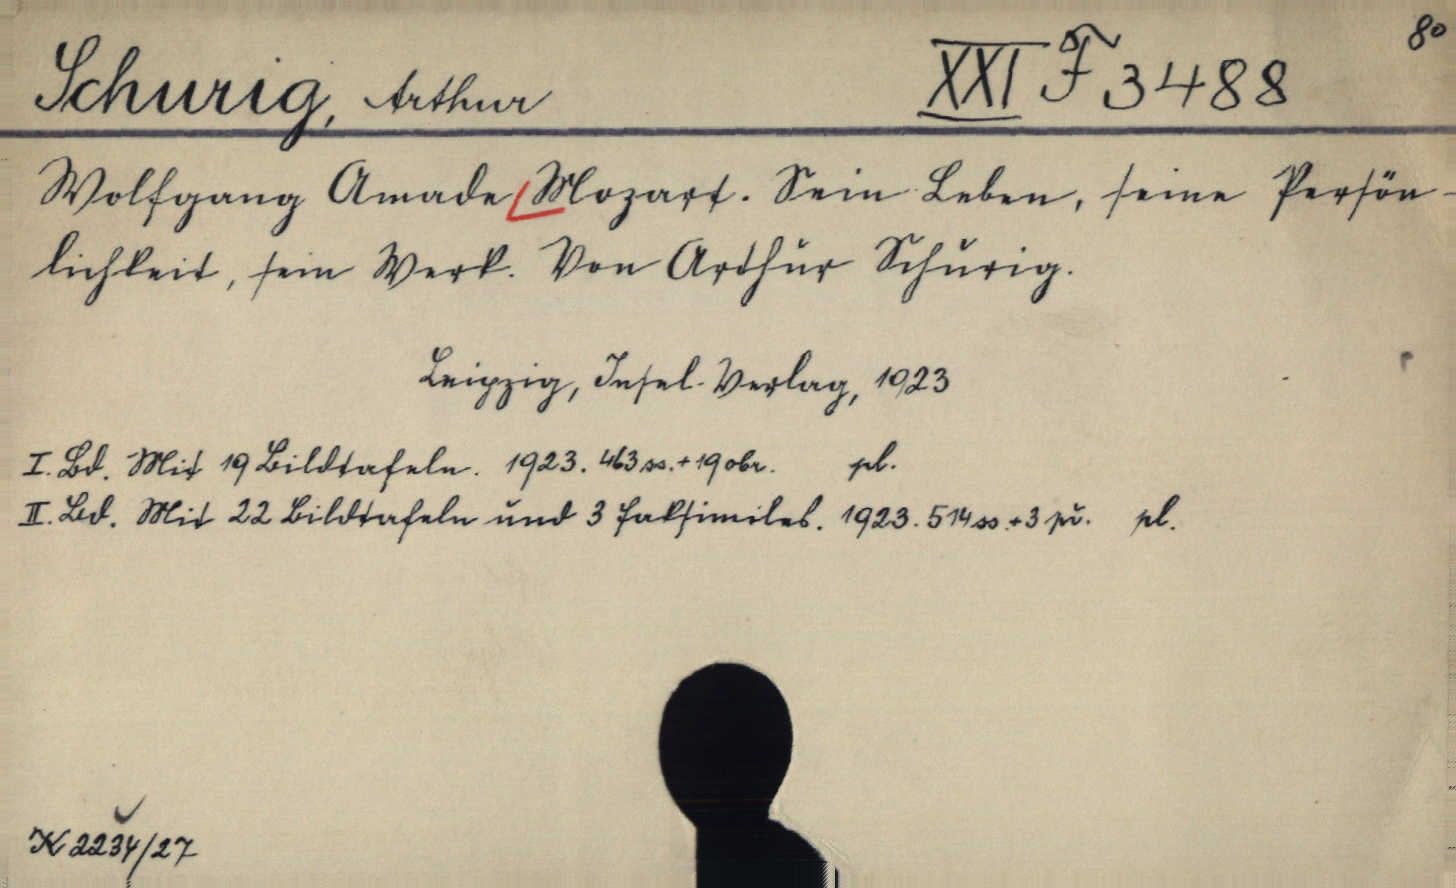 8°
Schurig, Arthur XXI F 3488
Wolfgang Amade Mozart. Sein Leben, seine Persön-
lichkeit, sein Werk. Von Arthur Schurig.
Leipzig, Insel-Verlag, 1923
I. Bd. Mit 19 Bildtafeln. 1923. 463 ss. + 19 obr. pl.
II. Bd. Mit 22 Bildtafeln und 3 Faksimiles. 1923. 514 ss + 3 př. pl.
K 2234/27